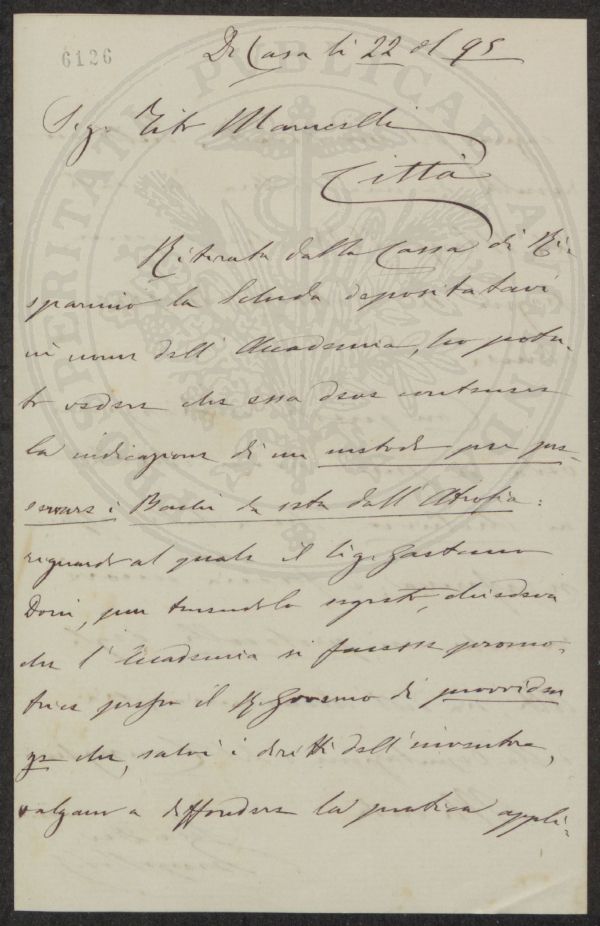 6126
Di Casa li 22 del 95
Sig. Tito Marucelli
Città
Ritirata dalla Cassa di Ri=
sparmio la Scheda depositatavi
in nome dell' Accademia, ho potu=
to vedere che essa deve contenere
la indicazione di un metodo per pre=
servare i Bachi da seta dall' Atrofia:
riguardo al quale il Sig. Gaetano
Doni, pur tenendolo segreto, chiedeva
che l' Accademia si facesse promo=
trice presso il R. Governo di provviden
ze che, salvi i diritti dell' inventore,
valgano a diffondere la pratica appli=
PROSPERITATI PUBLICAE AUGENDAE